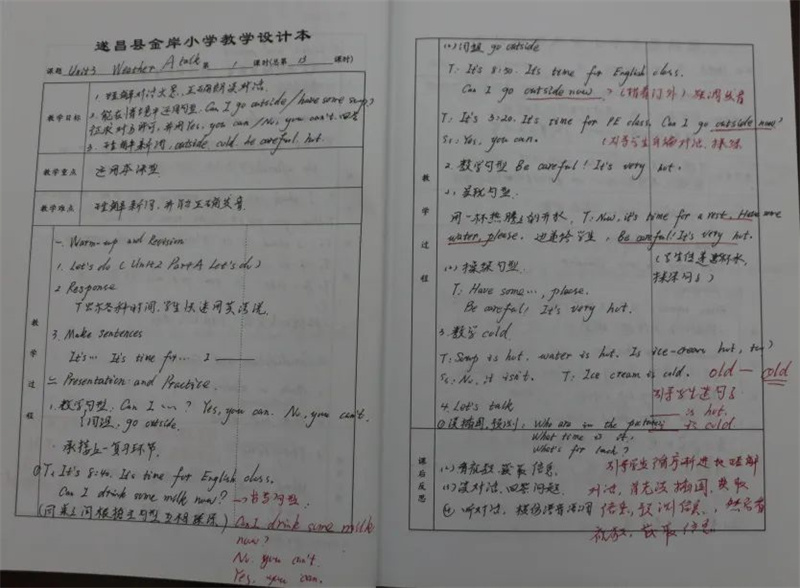 遂昌县金岸小学教学设计本
课题 Unit 3 Weather A talk 第 1 课时(总第 13 课时)
教学目标
1. 理解对话大意,正确朗读对话.
2. 能在情境中运用句型 Can I go outside/have some soup?
征求对方许可,并用 Yes, you can./No, you can't. 回答
3. 理解新词, outside, cold, be careful, hot.
教学重点
运用本课句型
教学难点
理解新词,并能正确发音
教学过程
一. Warm-up and Revision
1. Let's do (Unit 2 Part A Let's do)
2 Response
T出示各种时间,学生快速用英语说.
3. Make sentences
It's… It's time for… I
二 Presentation and Practice.
1. 教学句型, Can I …? Yes, you can. No, you can't.
词组, go outside.
承接上一复习环节.
① T: It's 8:40. It's time for English class.
Can I drink some milk now? → 板书句型
Can I drink some milk
now?
No, you can't.
Yes, you can.
(2) 词组 go outside
T: It's 8:30. It's time for English class.
Can I go outside now? (指着门外) 强调发音
T: It's 3:20. It's time for PE class. Can I go outside now?
Ss: Yes, you can.
2. 教学句型 Be careful! It's very hot.
(1) 呈现句型.
用一杯热腾腾的开水, T: Now, it's time for a rest. Have some
water, please. 边递给学生, Be careful! It's very hot.
(2) 操练句型.
T: Have some…, please.
Be careful! It's very hot.
3. 教学 cold
T: Soup is hot. water is hot. Is ice-cream hot, too?
Ss: No, it isn't. T: Ice cream is cold. old — cold
引导学生造句
is hot.
is cold
4. Let's talk
① 读插图,预测: Who are in the pictures
What time is it?
What's for lunch?
(2) 看视频 获取信息.
(3) 读对话, 回答问题.
④ 听对话, 模仿语音语调
教学过程
课后反思